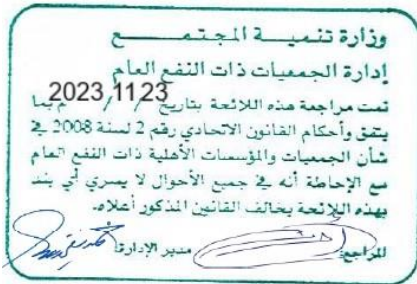 وزارة تنميـــة المجتمـــــع
إدارة الجمعيات ذات النفع العام
تمت مراجعة هذه اللائحة بتاريخ 2023/11/23م بما
يتفق وأحكام القانون الاتحادي رقم 2 لسنة 2008 في
شأن الجمعيات والمؤسسات الأهلية ذات النفع العام
مع الإحاطة أنه في جميع الأحوال لا يسري أي بند
بهذه اللائحة يخالف القانين المذكور أعلاه.
المراجع: مدير الإدارة: